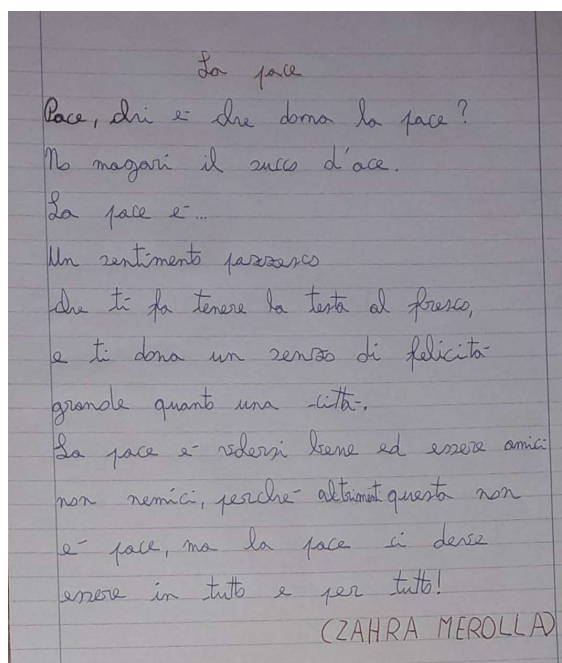 La pace
Pace, chi è che dona la pace?
No magari il succo d'ace.
La pace è...
Un sentimento pazzesco
che ti fa tenere la testa al fresco,
e ti dona un senso di felicità
grande quanto una città.
La pace è vedersi bene ed essere amici
non nemici, perché altriment questa non
è pace, ma la pace ci deve
essere in tutto e per tutto!
(ZAHRA MEROLLA)